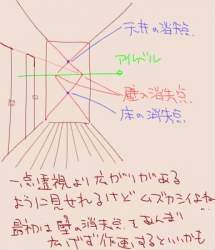 天井の消失点
アイレベル
壁の消失点
床の消失点
一点透視より広がりがある
ように見せれるけどムズカシイよね
最初は壁の消失点をあんまり
広げず作画するといいかも